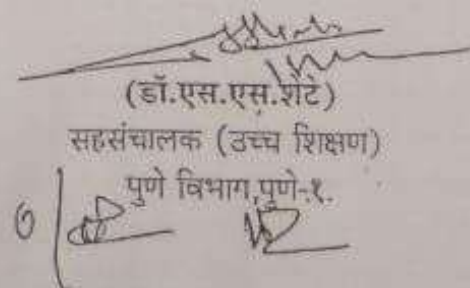 (डॉ.एस.एस.शेटे)
सहसंचालक (उच्च शिक्षण)
पुणे विभाग,पुणे-१.